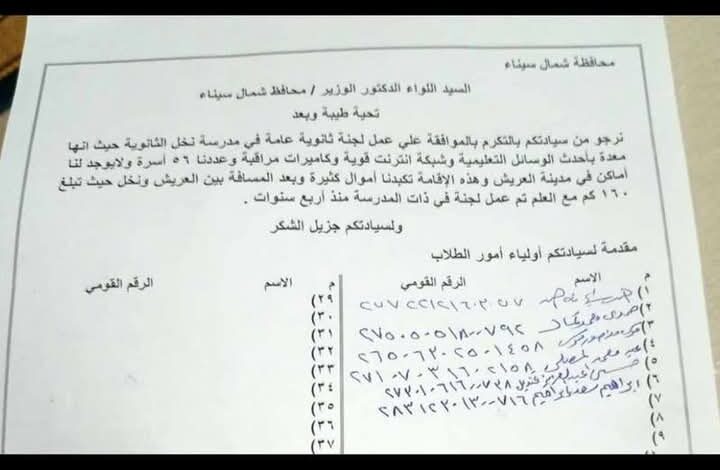 محافظة شمال سيناء
السيد اللواء الدكتور الوزير / محافظ شمال سيناء
تحية طيبة وبعد
نرجو من سيادتكم بالتكرم بالموافقة علي عمل لجنة ثانوية عامة في مدرسة نخل الثانوية حيث انها
معدة بأحدث الوسائل التعليمية وشبكة انترنت قوية وكاميرات مراقبة وعددنا ٥٦ أسرة ولايوجد لنا
أماكن في مدينة العريش وهذه الإقامة تكبدنا أموال كثيرة وبعد المسافة بين العريش ونخل حيث تبلغ
١٦٠ كم مع العلم تم عمل لجنة في ذات المدرسة منذ أربع سنوات .
ولسيادتكم جزيل الشكر
مقدمة لسيادتكم أولياء أمور الطلاب
م الاسم الرقم القومي م الاسم الرقم القومي
١)
٢)
٣)
٤)
٥)
٦) ابراهيم سعد ابراهيم
٧)
٨)
٩)
٢٩)
٣٠)
٣١)
٣٢)
٣٣)
٣٤)
٣٥)
٣٦)
٣٧)